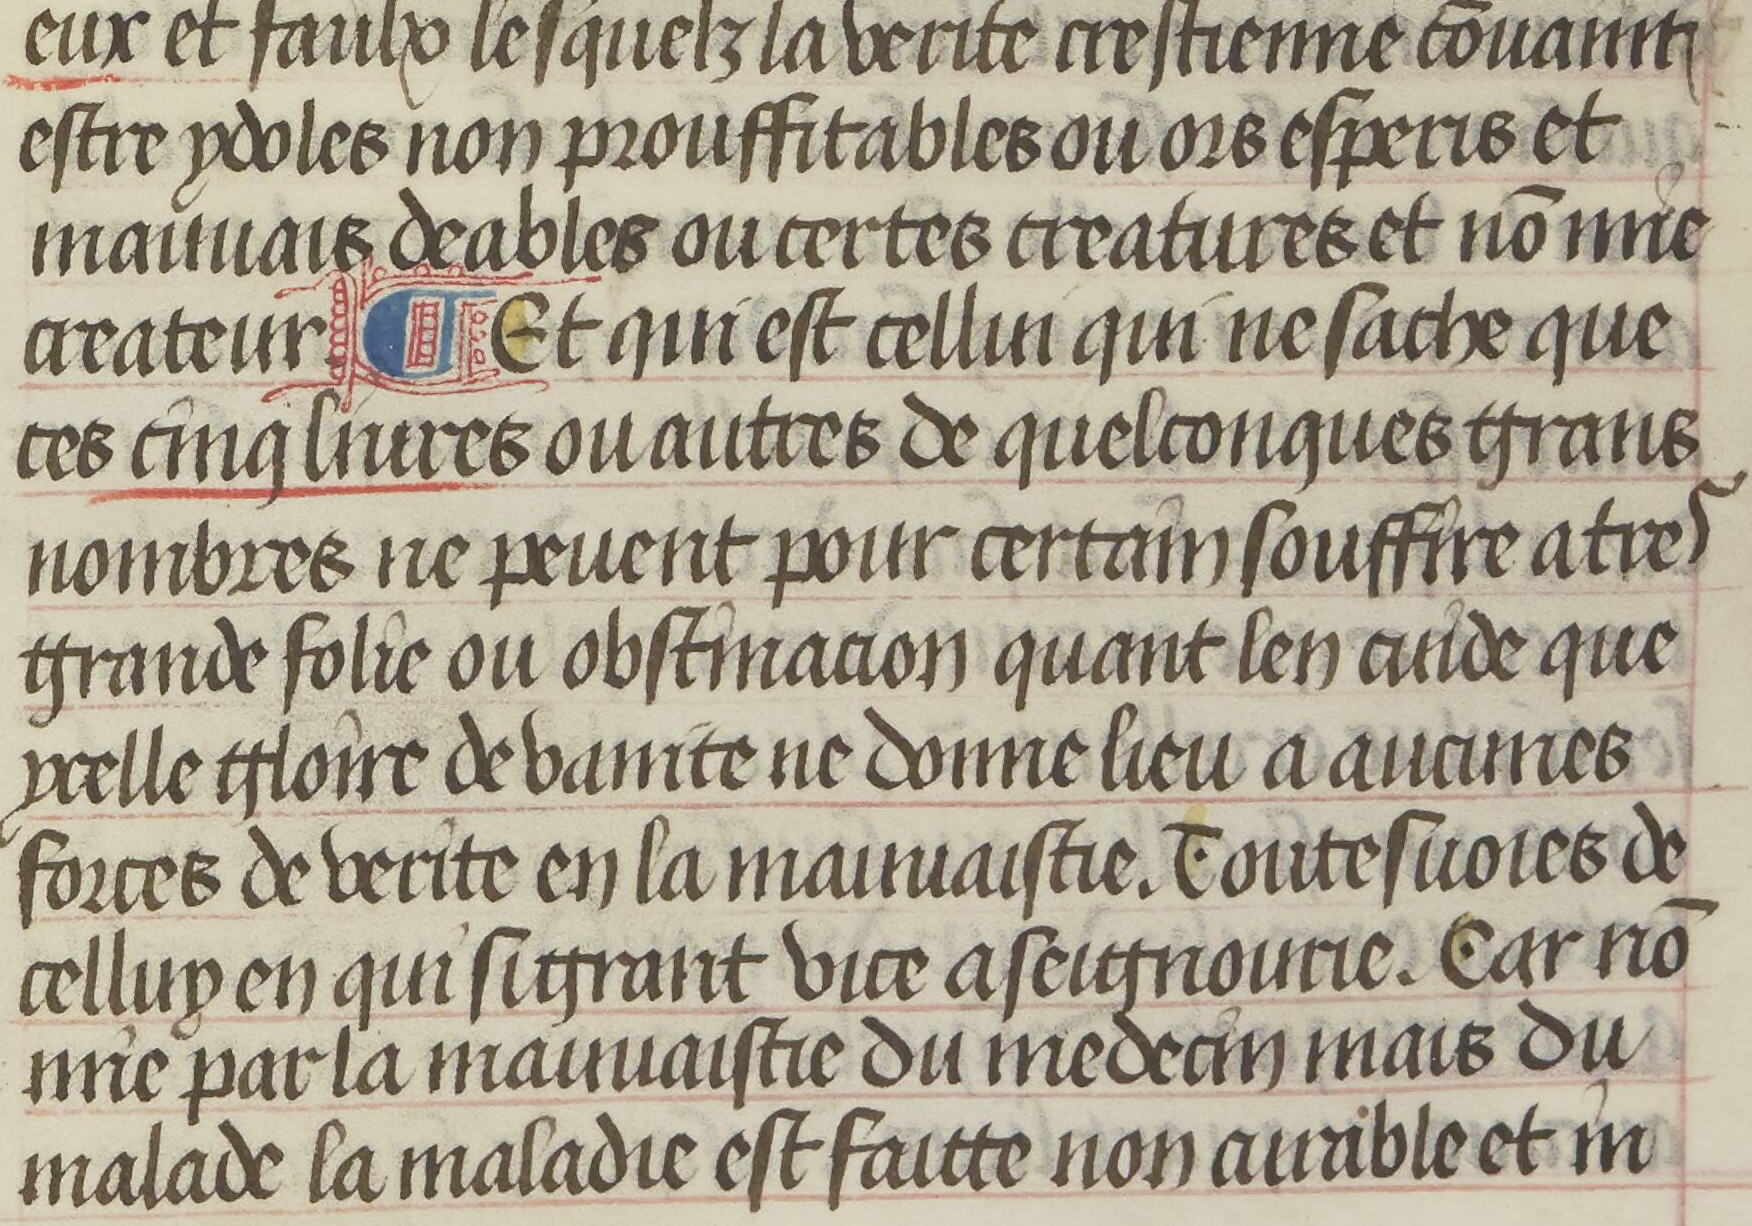 eux et faulx lesquelz la verite crestienne cōuainti
estre ydoles non prouffitables ou ors esperis et
mauuais deables ou certes creatures et nō mie
createur ¶ Et qui est cellui qui ne sache que
ces cinq liures ou autres de quelconques grans
nombres ne peuent pour certain souffire a tres
grande folie ou obstinacion quant len cuide que
ycelle gloire de vanite ne donne lieu a aucunes
forces de verite en la mauuaistie. Toutesuoies de
celluy en qui si grant vice a seignourie. Car nō
mie par la mauuaistie du medecin mais du
malade la maladie est faitte non curable et in